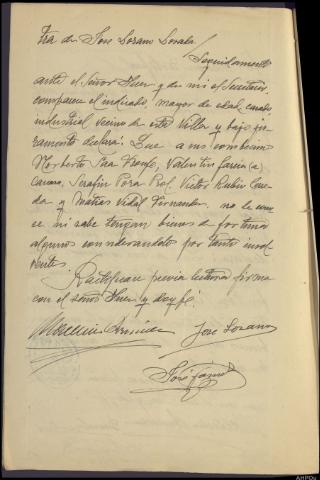 tra de Jose Lozano Losada
Seguidamente
ante el Señor Juez y de mi el Secretario,
comparece el indicado, mayor de edad, casado,
industrial vecino de esta Villa y bajo ju-
ramento declara: Que a sus convecinos
Norberto Valentin Garcia (a)
Serafin Victor Rubio
y Matias Vidal Fernandez, no le cono-
ce ni sabe tengan bienes de fortuna
algunos considerandolos por tanto insol-
ventes.
Ratifican previa lectura firma
con el señor Juez y doy fé.
Jose Lozano
José
AHPOu